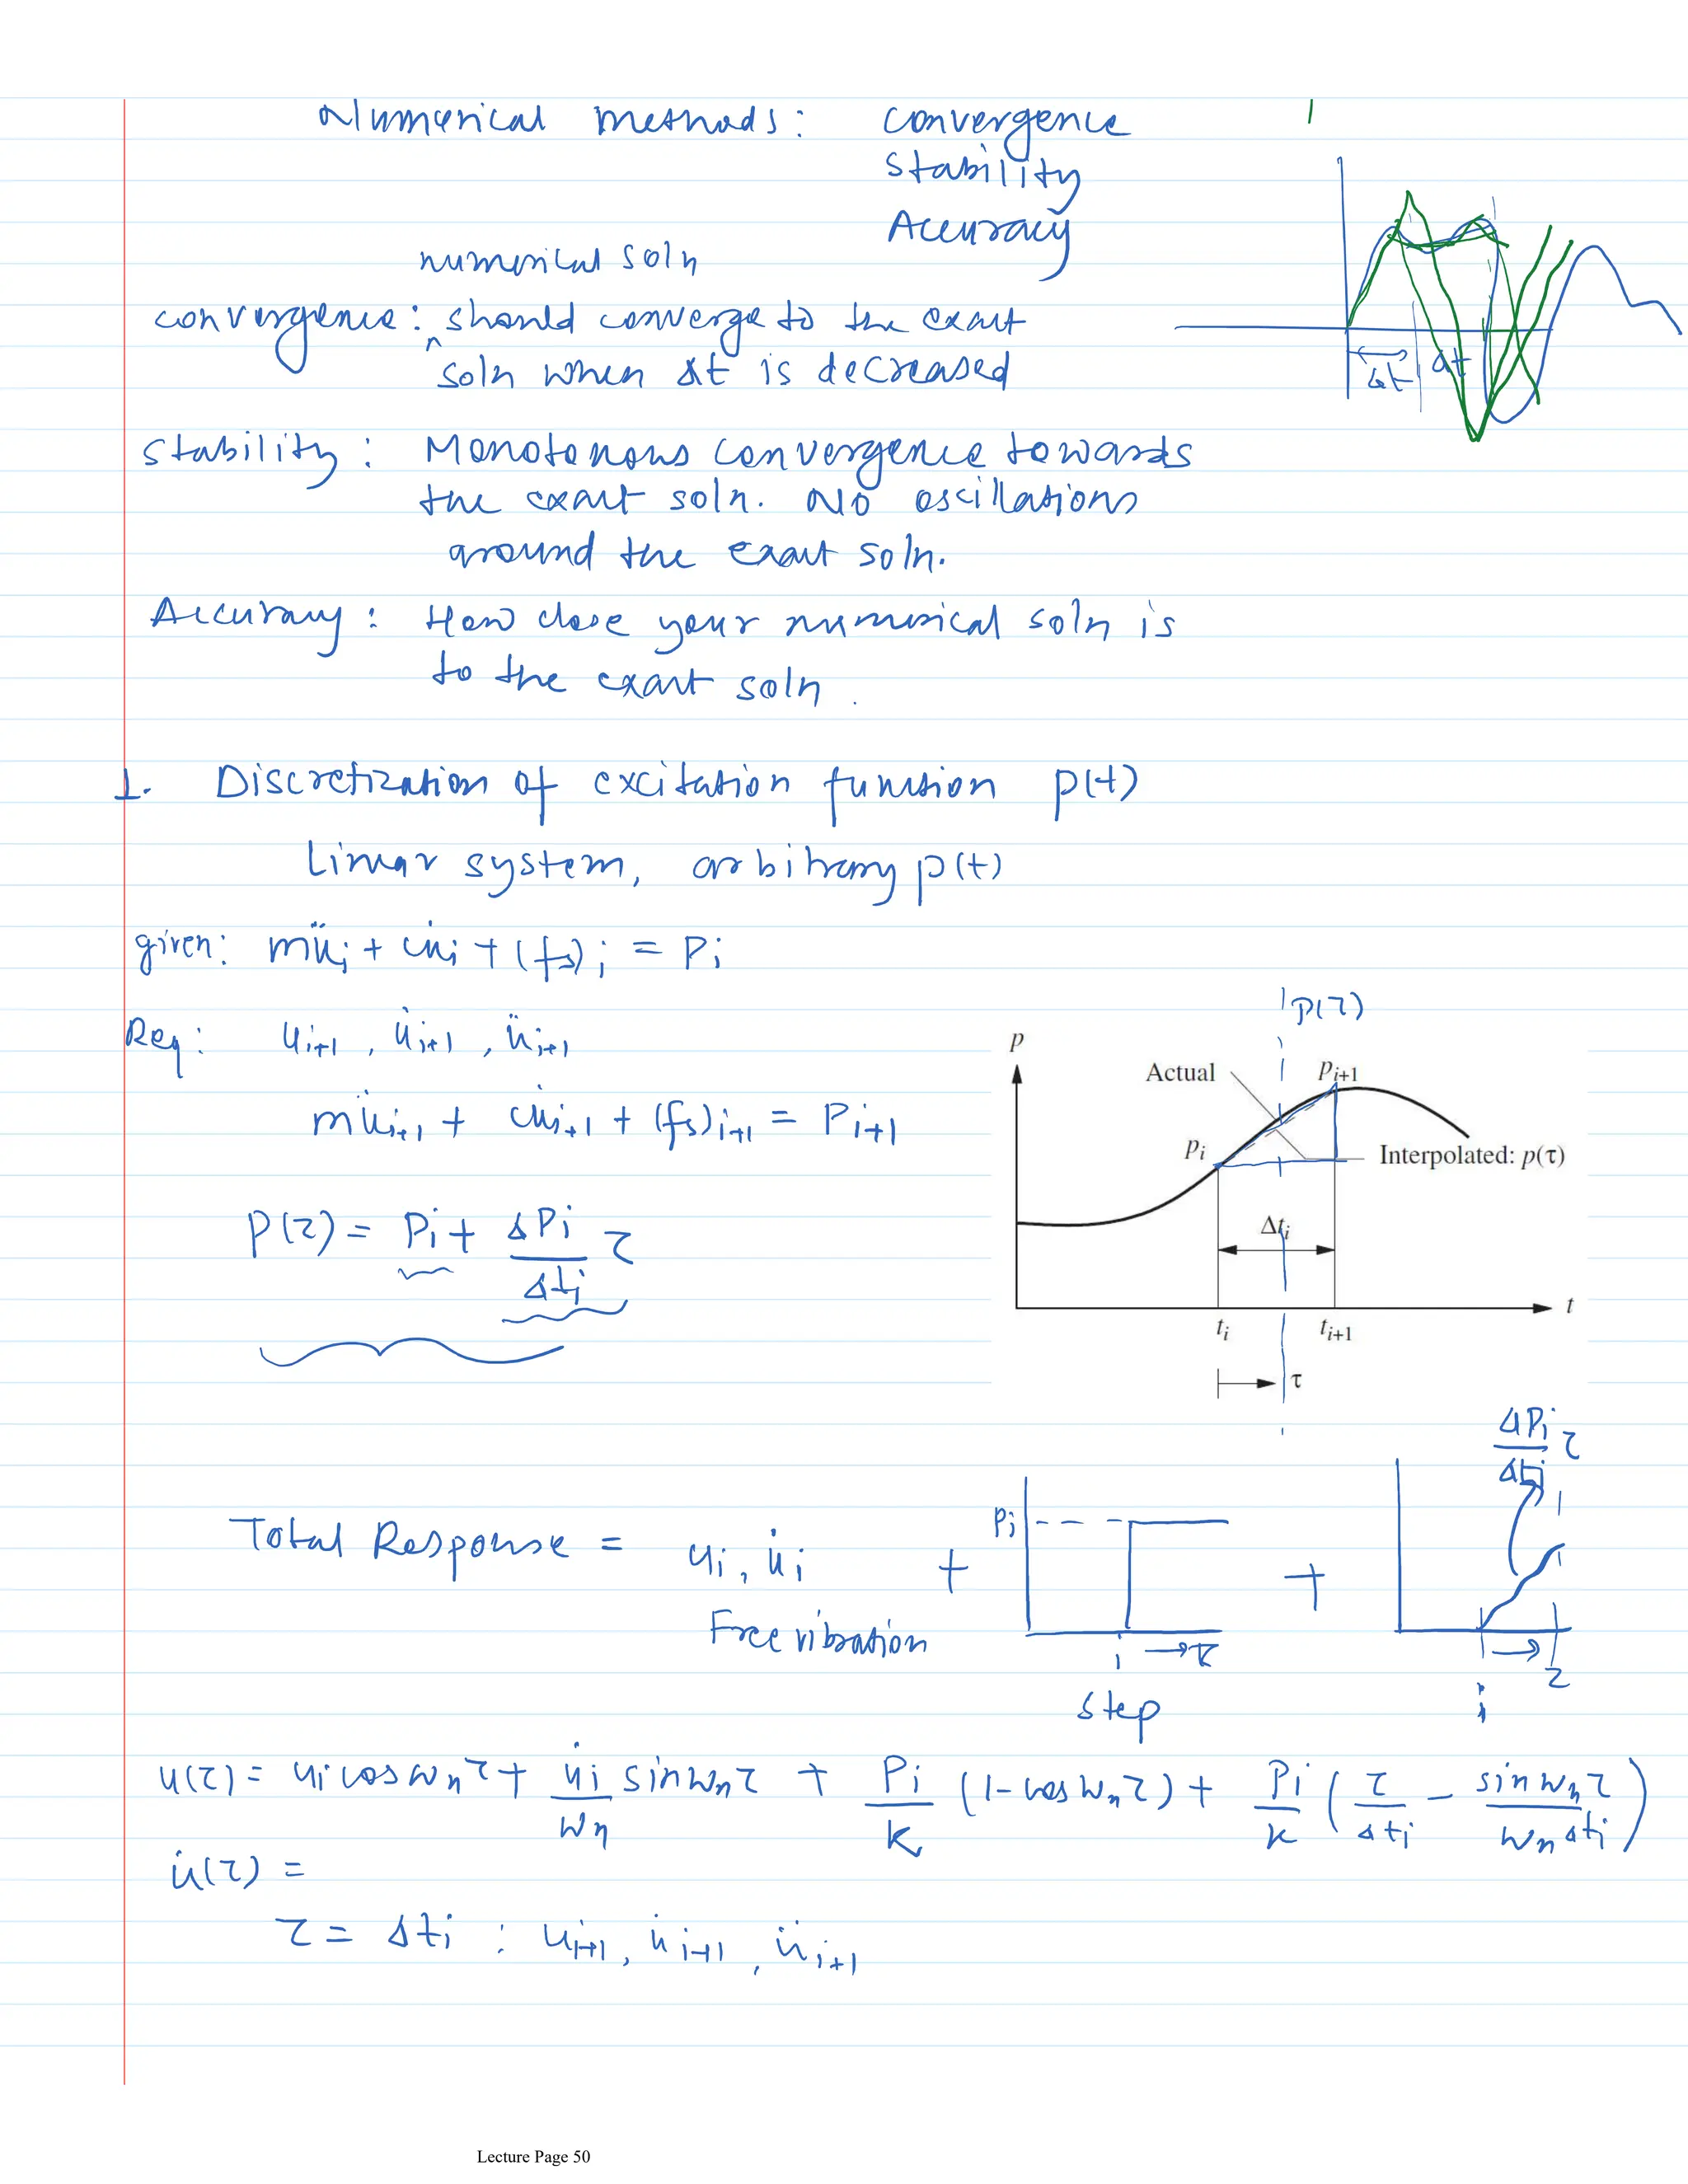 Numerical methods: convergence
stability
Accuracy
numerical soln
convergence: ^ should converge to the exact
soln when Δt is decreased
Δt Δt
stability: Monotonous convergence towards
the exact soln. No oscillations
around the exact soln.
Accuracy: How close your numerical soln is
to the exact soln.
1. Discretization of excitation function p(t)
Linear system, arbitrary p(t)
given: mü_i + cu̇_i + (fs)_i = P_i
Req: u_i+1, u̇_i+1, ü_i+1
mü_i+1 + cu̇_i+1 + (fs)_i+1 = P_i+1
P(τ) = P_i + ΔP_i/Δt_i τ
P(τ)
p
Actual
p_i+1
p_i
Interpolated: p(τ)
Δt_i
t
t_i t_i+1
τ
ΔP_i/Δt_i τ
Total Response = u_i, u̇_i + P_i +
Free vibration
i → τ
τ
Step
i
u(τ) = u_i cos ω_n τ + u̇_i/ω_n sin ω_n τ + P_i/k (1 - cos ω_n τ) + P_i/k (τ/Δt_i - sin ω_n τ/ω_n Δt_i)
u̇(τ) =
τ = Δt_i : u_i+1, u̇_i+1, ü_i+1
Lecture Page 50